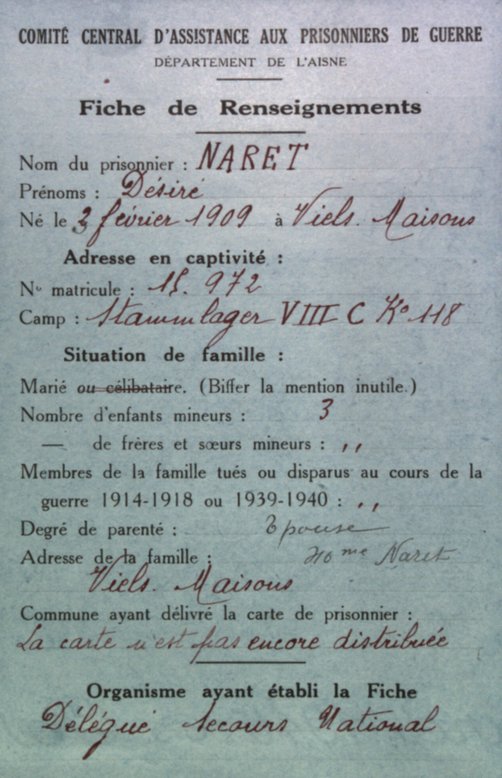 COMITÉ CENTRAL D'ASSISTANCE AUX PRISONNIERS DE GUERRE
DÉPARTEMENT DE L'AISNE
Fiche de Renseignements
Nom du prisonnier : NARET
Prénoms : Désiré
Né le 3 février 1909 à Viels. Maisons
Adresse en captivité :
No matricule : 15. 972
Camp : Stammlager VIII C Ko 118
Situation de famille :
Marié ou célibataire. (Biffer la mention inutile.)
Nombre d'enfants mineurs : 3
— de frères et sœurs mineurs : ,,
Membres de la famille tués ou disparus au cours de la
guerre 1914-1918 ou 1939-1940 : ,,
Degré de parenté : Epouse
Adresse de la famille : Mme Naret
Viels. Maisons
Commune ayant délivré la carte de prisonnier :
La carte n'est pas encore distribuée
Organisme ayant établi la Fiche
Délégué Secours National